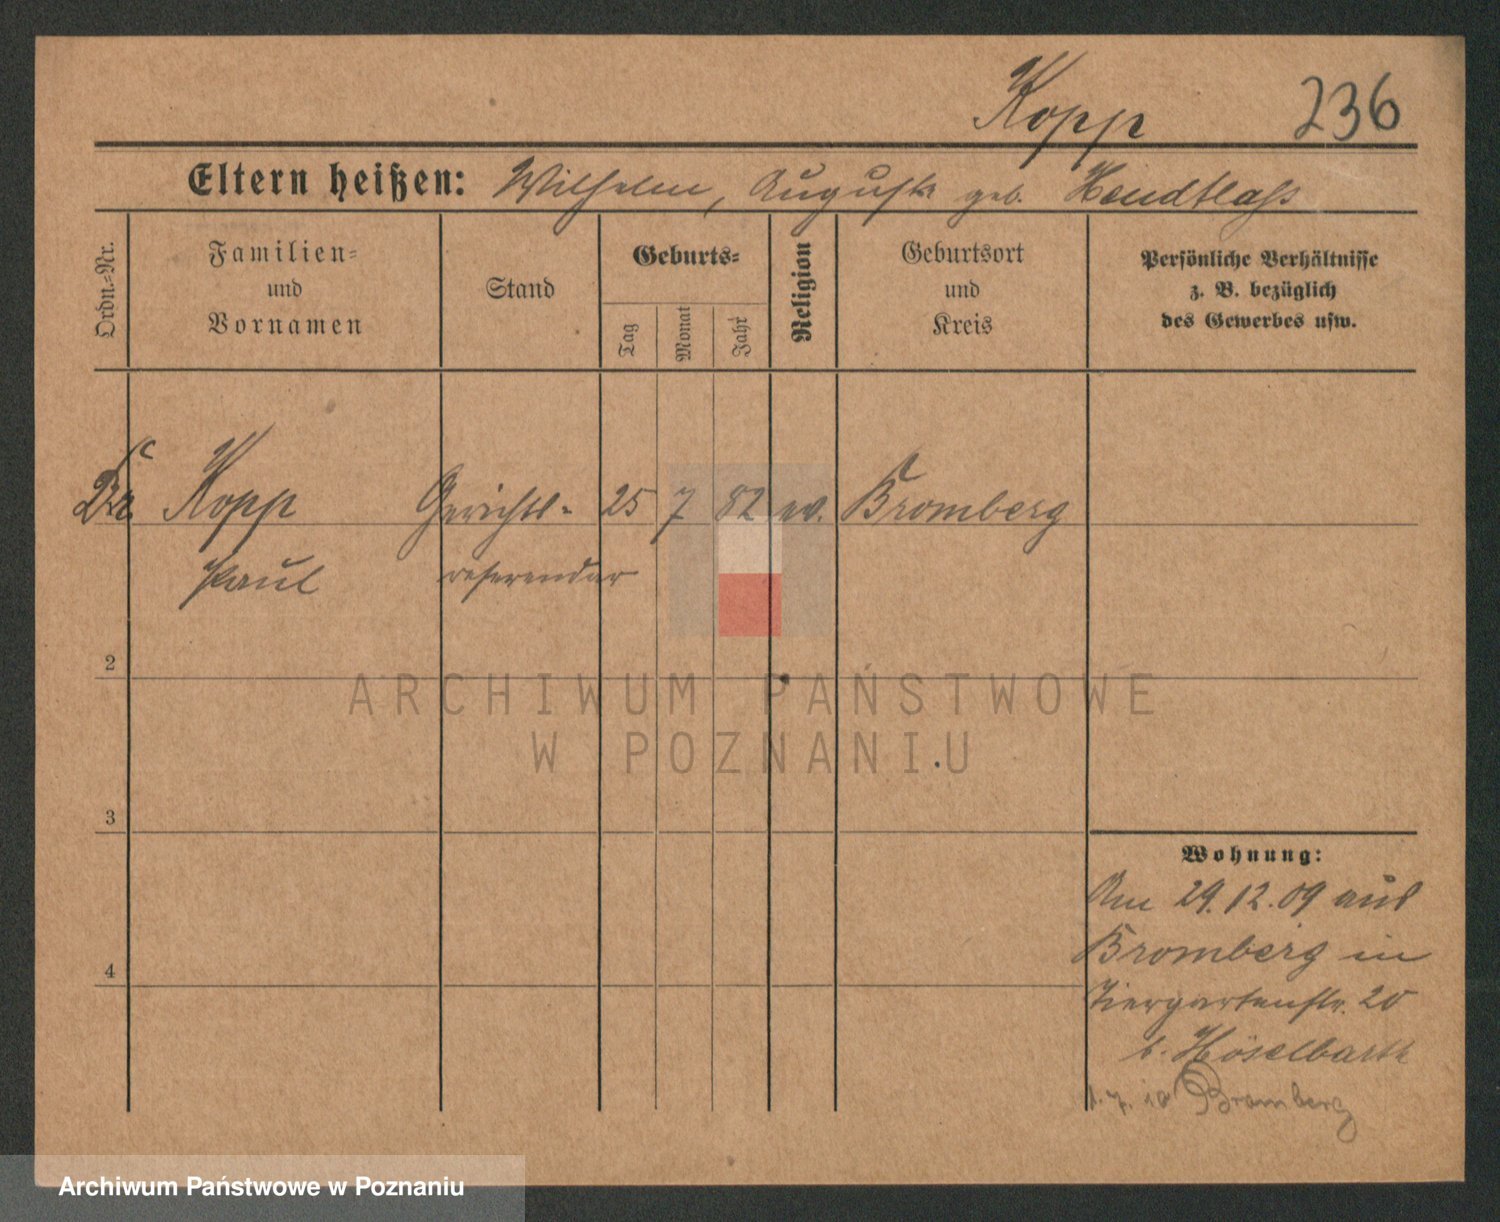 Kopp 236
Eltern heißen: Wilhelm, Auguste geb. Hendtlaß
Ordn.-Nr.
Familien-
und
Vornamen
Stand
Geburts-
Tag
Monat
Jahr
Religion
Geburtsort
und
Kreis
Persönliche Verhältnisse
z. B. bezüglich
des Gewerbes usw.
Dr. Kopp Gerichts- 25 7 82 ev. Bromberg
Paul referendar
2
ARCHIWUM PAŃSTWOWE
W POZNANIU
3
Wohnung:
Am 29.12.09 aus
Bromberg in
4
Tiergartenstr. 20
b. Höselbarth
1.7.10 Bromberg
Archiwum Państwowe w Poznaniu